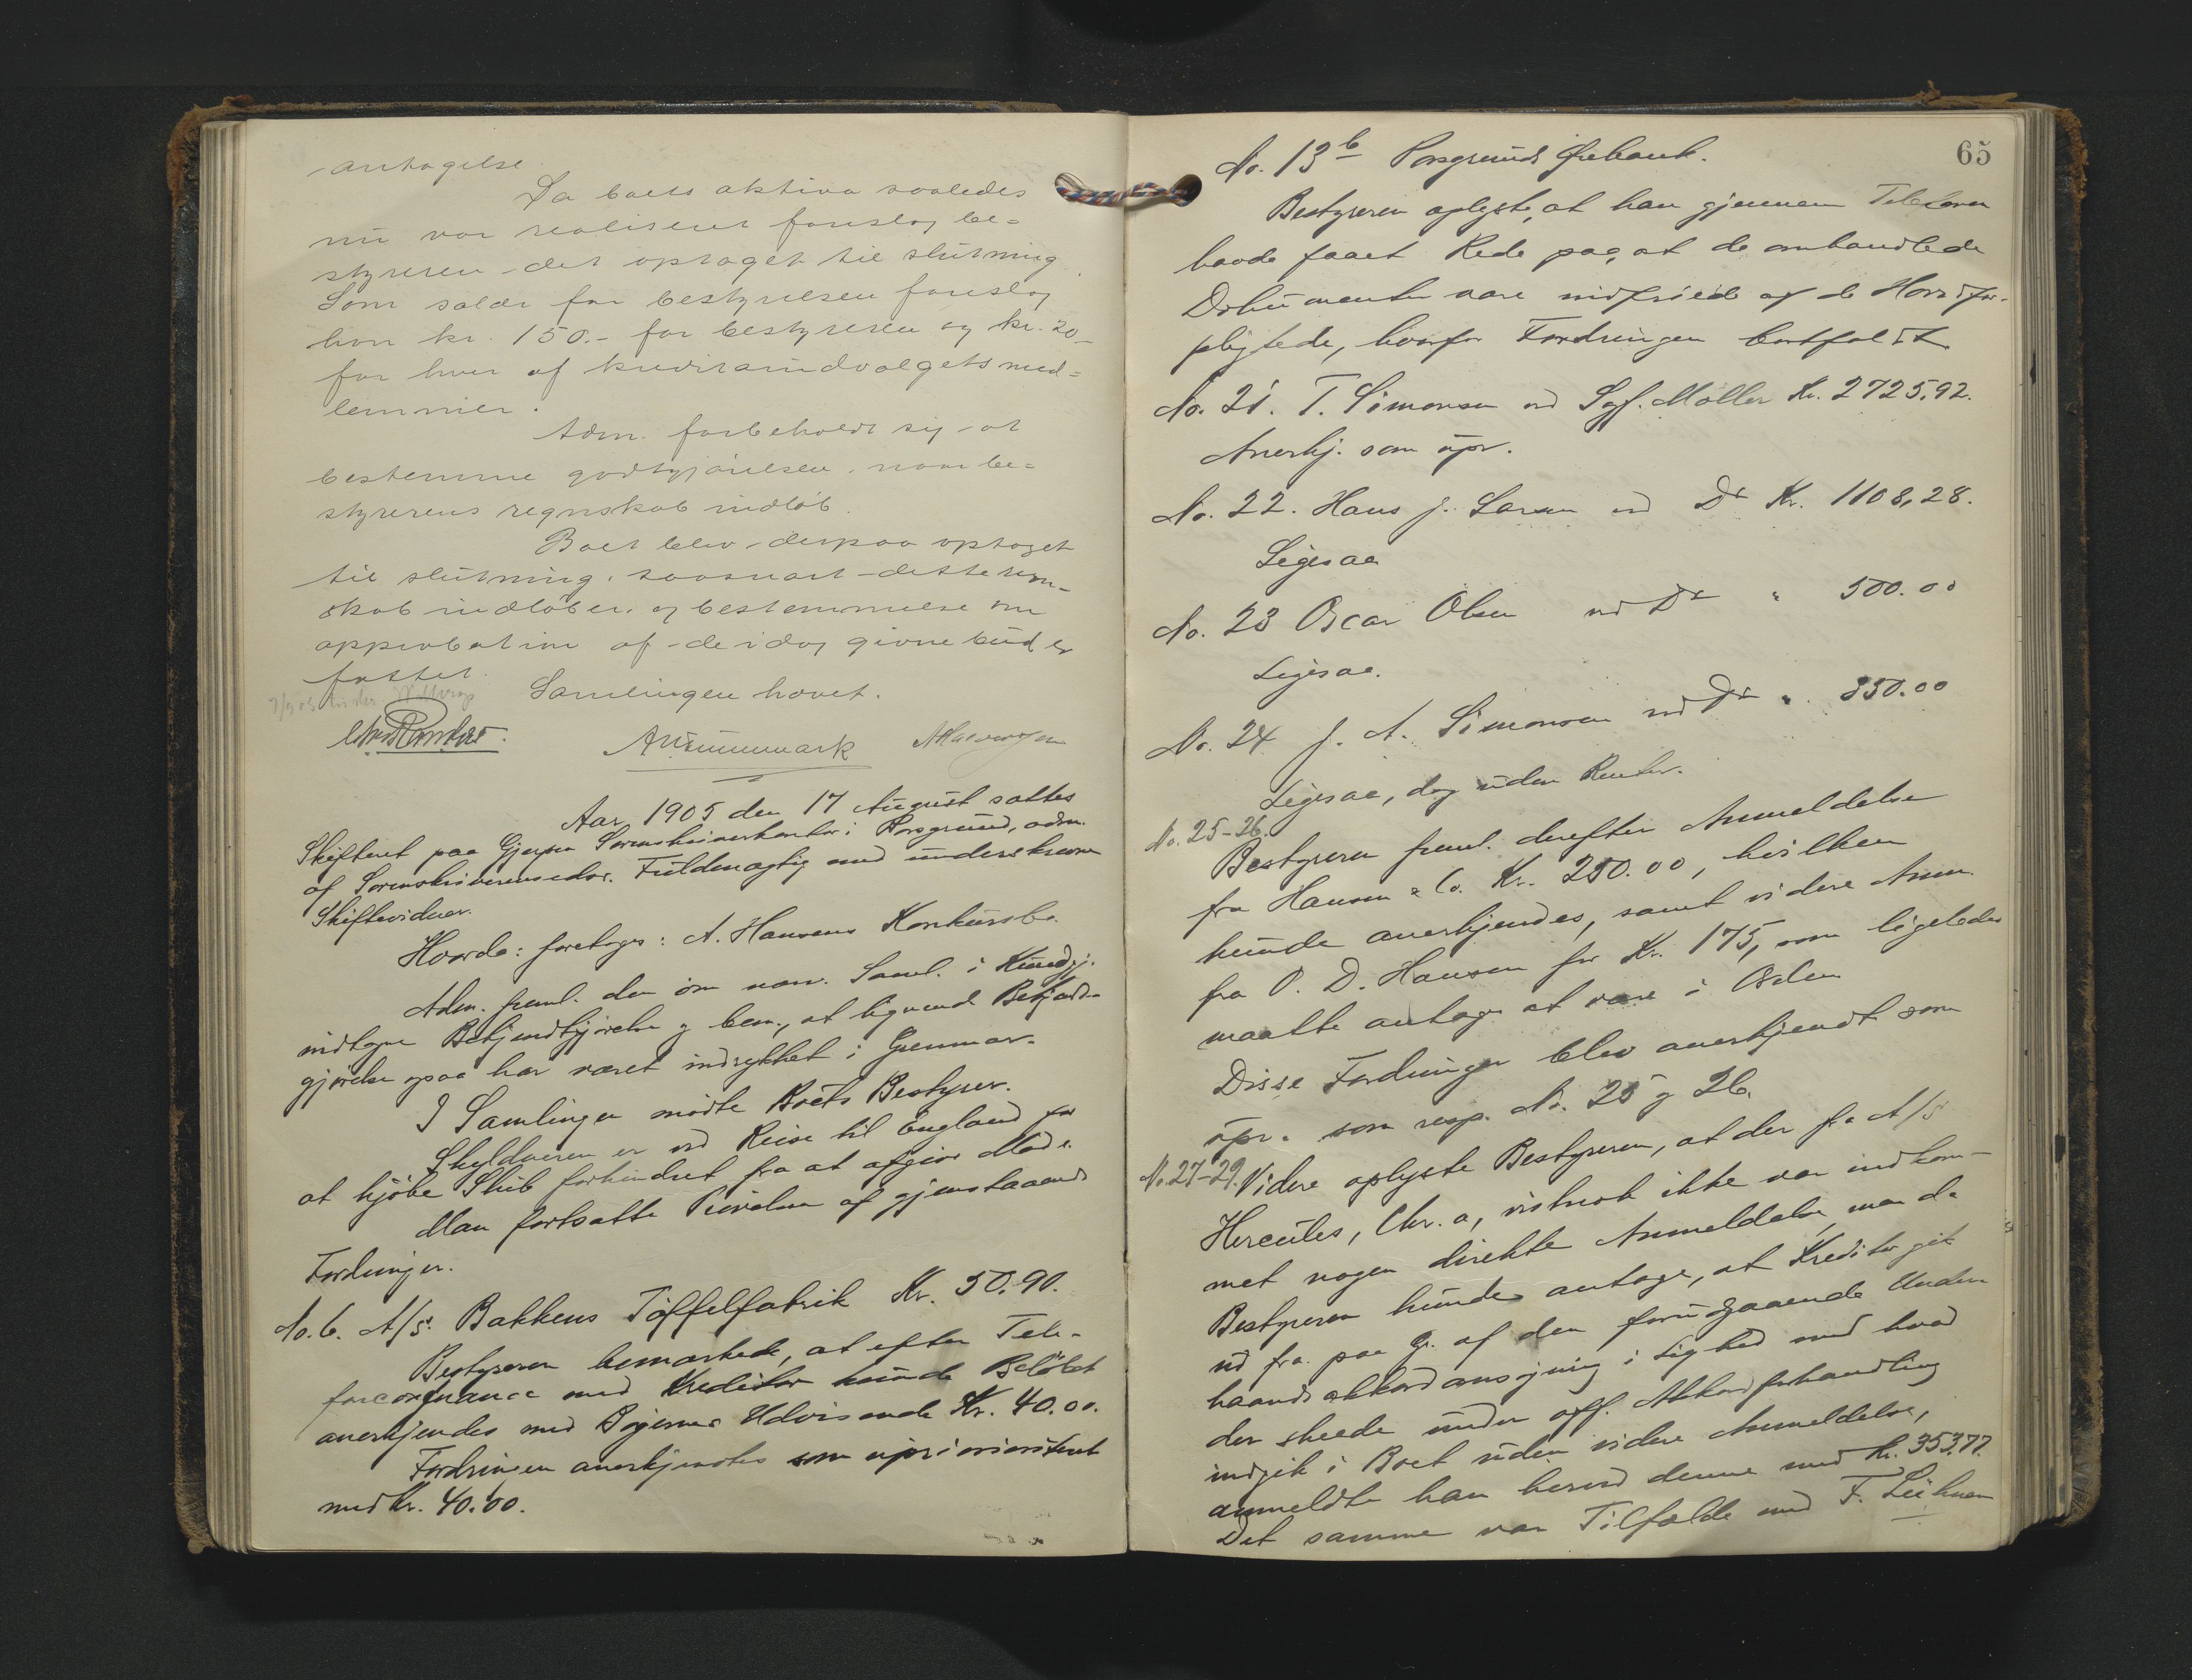 antagelse.
Da boets aktiva saaledes
nu var realiseret foreslog be=
styreren det optaget til slutning.
Som salær for bestyrelsen foreslog
han kr. 150.- for bestyreren og kr. 20-
for hver af kreditorudvalgets med=
lemmer.
Adm. forbeholdt sig at
bestemme godtgjørelsen naar be=
styrerens regnskab indløb.
Boet blev derpaa optaget
til slutning, saasnart dette regn-
skab indløber og bestemmelse om
approbation af de idag givne bud er
fattet.
Samlingen hævet.
Aar 1905 den 17 August sattes
Skifteret paa Gjerpen Sorenskriverkontor i Porsgrund, adm.
af Sorenskriverens edsv. Fuldmægtig med underskrevne
Skiftevidner.
Hvorda: foretoges: A. Hansens Konkursbo.
Adm. freml. den om nærv. Saml. i Kundgj.
indtagne Bekjendtgjørelse og bem., at lignende Bekjendt-
gjørelse ogsaa har været indrykket i Grenmar.
I Samlingen mødte Boets Bestyrer.
Skyldneren er ved Reise til England for
at kjøbe Skib forhindret fra at afgive Møde.
Man fortsatte Prøvelsen af gjenstaaende
Fordringer.
No. 6. A/S. Bakkens Tøffelfabrik Kr. 50.90.
Bestyreren bemærkede, at efter Tele-
fonconferance med Kreditor kunde Beløbet
anerkjendes med Bøgernes Udvisende Kr. 40.00.
Fordringen anerkjendtes som uprioriteret
med Kr. 40.00.
65
No. 13b Porsgrunds Ørebank.
Bestyreren oplyste, at han gjennem Telefonen
havde faaet Rede paa, at de omhandlede
Dokumenter vare indfriede af de Hovedfor-
pligtede, hvorfor Fordringen bortfaldt.
No. 21. T. Simonsen ved Sgf. Møller Kr. 2725,92.
Anerkj. som upr.
No. 22. Hans J. Larsen ved Do Kr. 1108,28.
Ligesaa
No. 23 Oscar Olsen ved Do " 500.00
Ligesaa.
No. 24 J. A. Simonsen ved Do " 350.00
Ligesaa, dog uden Renter.
No. 25-26.
Bestyreren freml. derefter Anmeldelse
fra Hansen & Co. Kr. 250.00, hvilken
kunde anerkjendes, samt videre Anm.
fra P. D. Hansen for Kr. 175, som ligeledes
maatte antages at være i Orden
Disse Fordringer blev anerkjendt som
upr. som resp. No. 25 og 26.
No. 27-29. Videre oplyste Bestyreren, at der fra A/S
Hercules, Chr.a, vistnok ikke var indkom-
met nogen direkte Anmeldelse, men da
Bestyreren kunde antage, at Kreditor gik
ud fra paa Gr. af den forudgaaende Under-
haandsakkordansøgning i Lighed med hvad
der skeede under off. Akkordforhandling
indgik i Boet uden videre Anmeldelse,
anmeldte han herved denne med Kr. 353.77.
Det samme var Tilfælde med F.